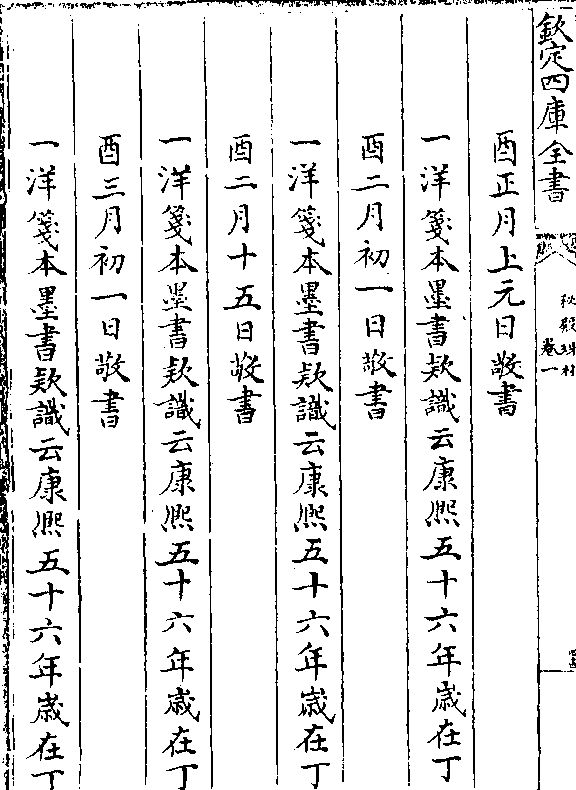 欽定四庫全書
秘殿珠林
卷一
酉正月上元日敬書
一洋箋本墨書欵識云康熙五十六年歲在丁
酉二月初一日敬書
一洋箋本墨書欵識云康熙五十六年歲在丁
酉二月十五日敬書
一洋箋本墨書欵識云康熙五十六年歲在丁
酉三月初一日敬書
一洋箋本墨書欵識云康熙五十六年歲在丁